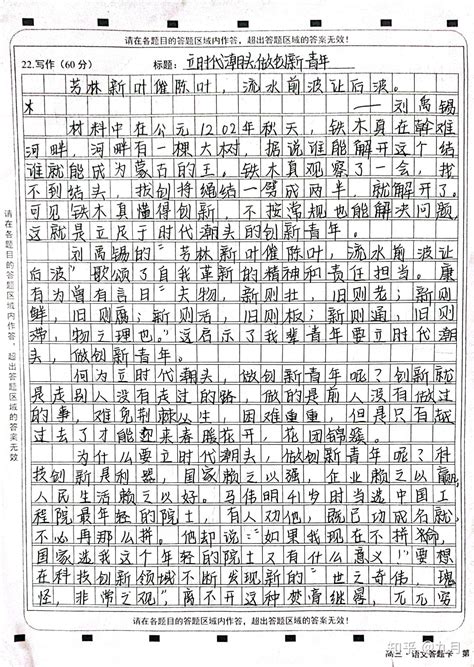 请在各题目的答题区域内作答，超出答题区域的答案无效！
22.写作（60分） 标题：立时代潮头，做创新青年
芳林新叶催陈叶，流水前波让后波。
——刘禹锡
材料中在公元1202年秋天，铁木真在斡难
河畔，河畔有一棵大树，据说谁能解开这个结
谁就能成为蒙古的王，铁木真观察了一会，找
不到结头，找剑将绳结一劈成两半，就解开了。
可见铁木真懂得创新，不按常规也能解决问题，
这就是立足于时代潮头的创新青年。
刘禹锡的“芳林新叶催陈叶，流水前波让
后波”歌颂了自我革新的精神和责任担当。康
有为曾有言曰“夫物，新则壮，旧则老；新则
鲜，旧则腐；新则活，旧则板；新则通，旧则
滞，物之理也。”这启示了我辈青年要立时代潮
头，做创新青年。
何为立时代潮头，做创新青年呢？创新就
是走别人没有走过的路，做的是前人没有做过
的事，难免荆棘丛生，困难重重，但是只有越
过去了才能迎来春暖花开，花团锦簇。
为什么要立时代潮头，做创新青年呢？科
技创新是利器，国家赖之以强，企业赖之以赢，
人民生活赖之以好。马伟明41岁时当选中国工
程院最年轻的院士，有人劝他，既已功成名就，
不必再那么拼。他却说：“如果我现在不拼搏，
国家选我这个年轻的院士又有什么意义？”要想
在科技创新领域不断发现新的“世之奇伟，瑰
怪，非常之观”，离不开这种焚膏继晷，兀兀穷
请在各题目的答题区域内作答，超出答题区域的答案无效！
知乎 @九月
高三·语文答题卡 第
请在各题目的答题区域内作答，超出答题区域的答案无效